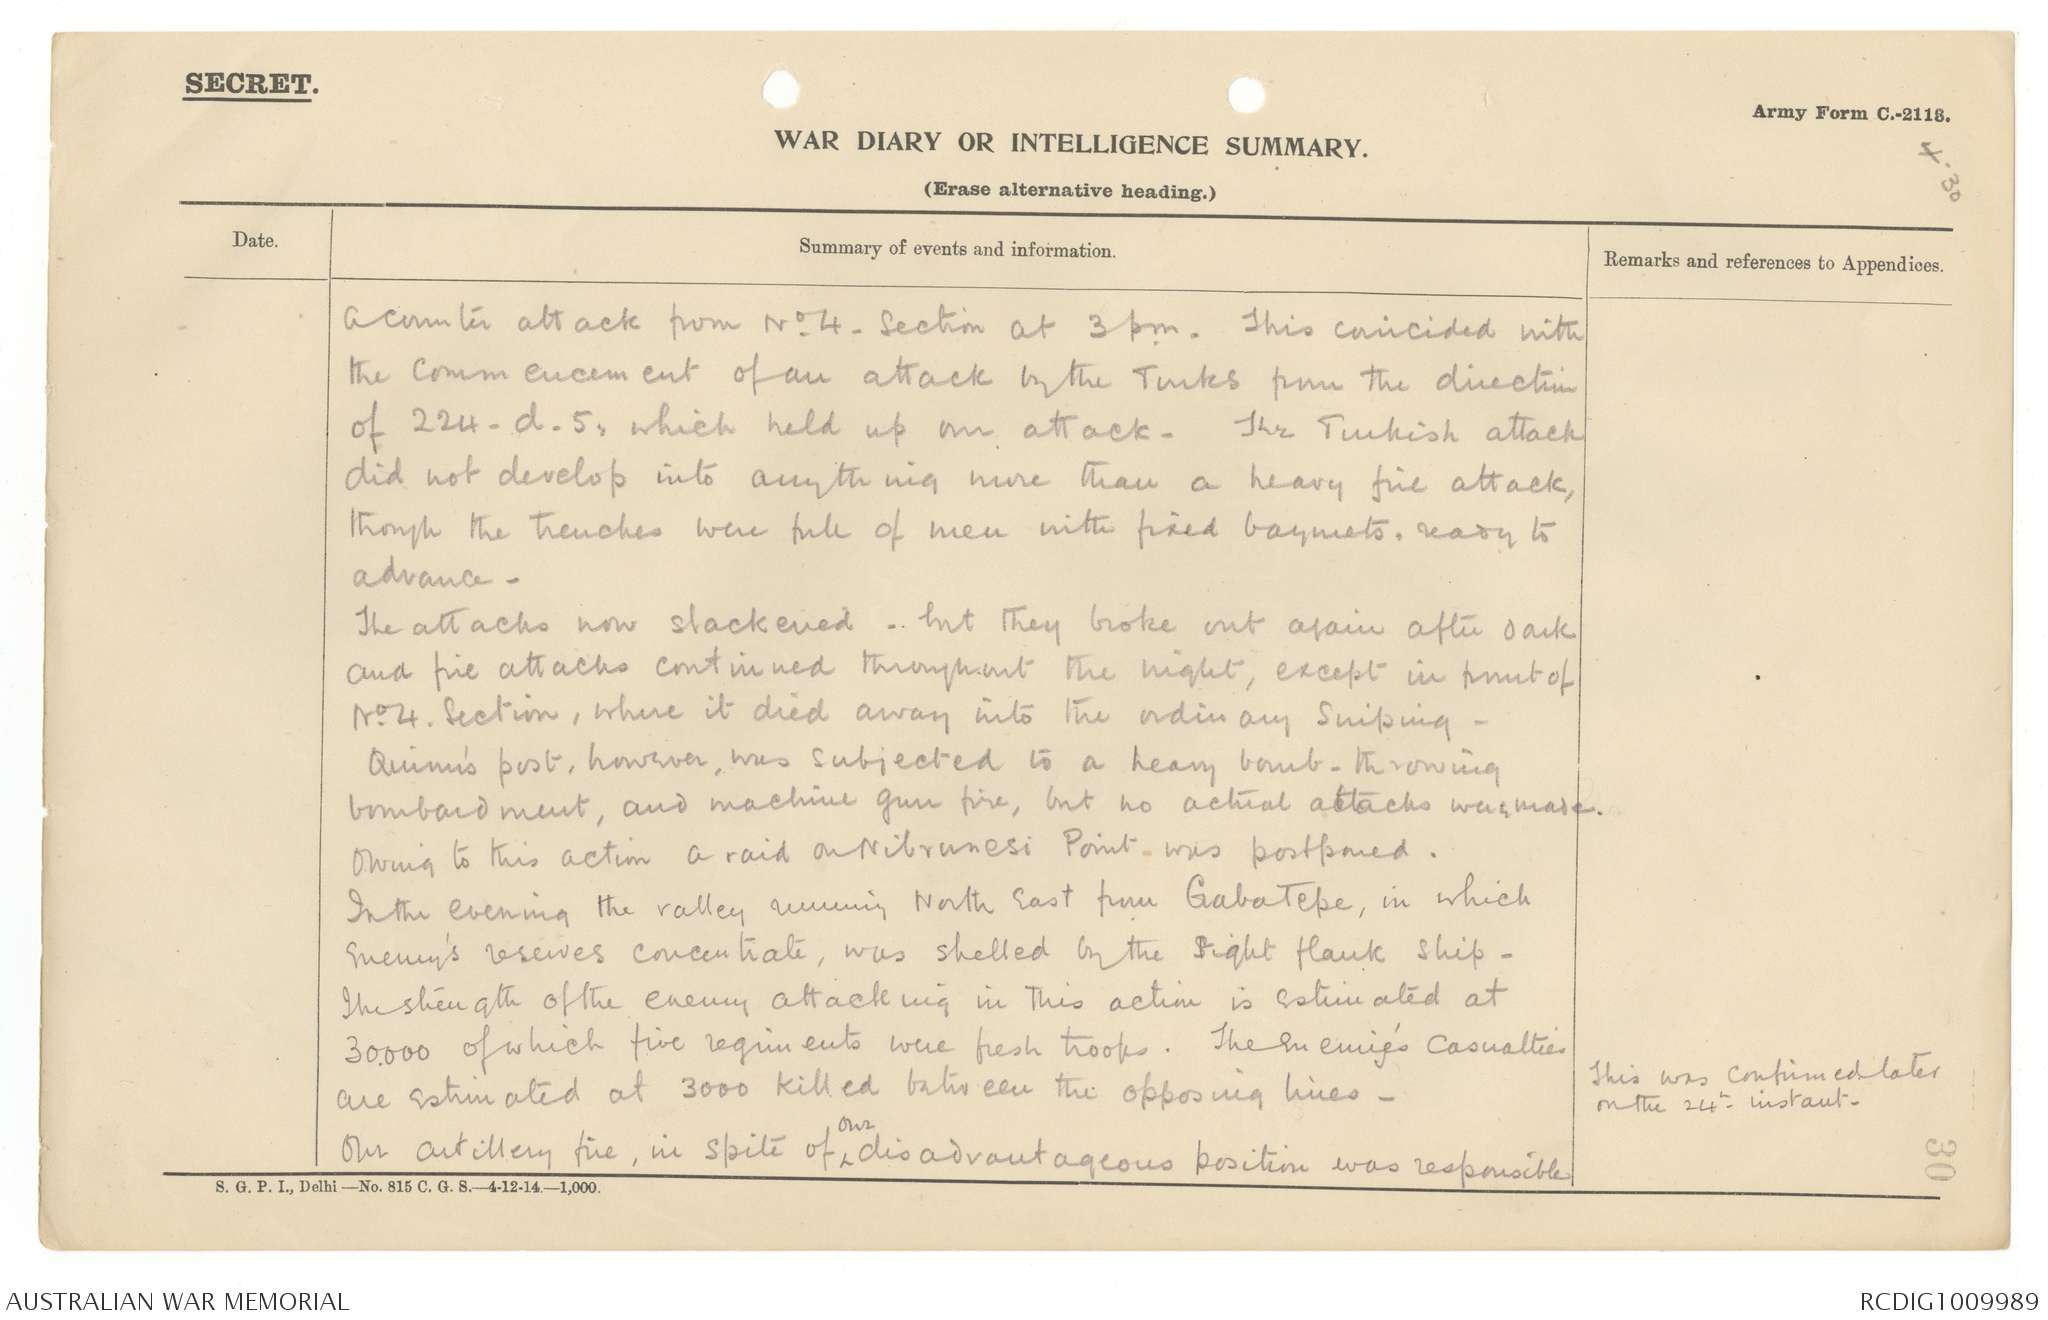 SECRET.
Army Form C.-2118.
WAR DIARY OR INTELLIGENCE SUMMARY.
(Erase alternative heading.)
30
Date.
Summary of events and information.
Remarks and references to Appendices.
a counter attack from No. 4 - Section at 3 pm. This coincided with
the Commencement of an attack by the Turks from the direction
of 224 - d - 5, which held up our attack - The Turkish attack
did not develop into anything more than a heavy fire attack,
though the trenches were full of men with fixed bayonets, ready to
advance -
The attacks now slackened - but they broke out again after dark
and fire attacks continued throughout the night, except in front of
No. 4. Section, where it died away into the ordinary Sniping -
Quinn's post, however, was subjected to a heavy bomb-throwing
bombardment, and machine gun fire, but no actual attacks was made.
Owing to this action a raid on Nibrunesi Point was postponed.
In the evening the valley running North East from Gabatepe, in which
Enemy's reserves concentrate, was shelled by the right flank Ship -
The strength of the enemy attacking in this action is estimated at
30000 of which five regiments were fresh troops. The Enemy's casualties
are estimated at 3000 killed between the opposing lines -
This was confirmed later
on the 24th instant -
Our artillery fire, in spite of our disadvantageous position was responsible
30
S. G. P. I., Delhi —No. 815 C. G. S.—4-12-14.—1,000.
AUSTRALIAN WAR MEMORIAL
RCDIG1009989